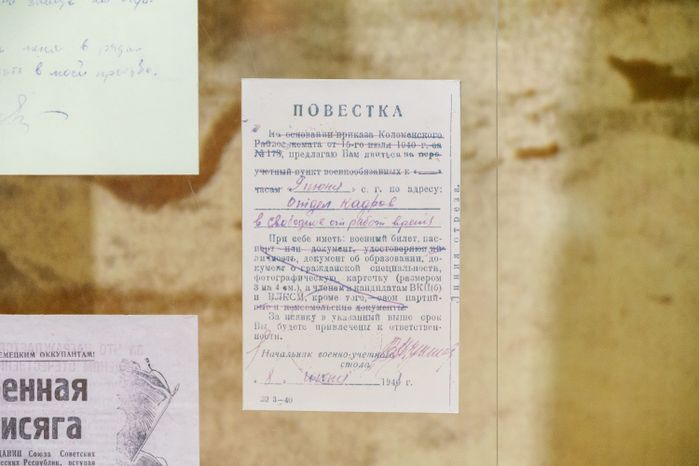 в моей просьбе.
ПОВЕСТКА
На основании приказа Коломенского
от 15-го июля 1940 г. за
№ 178, предлагаю Вам явиться на пере-
учетный пункт военнообязанных к
часам „9 июня" с. г. по адресу:
Отдел кадров
в свободное от работ время
При себе иметь: военный билет, пас-
порт или документ, удостоверяющий
личность, документ об образовании, до-
кумент о гражданской специальности,
фотографическую карточку (размером
3 на 4 см.), а членам и кандидатам ВКП(б)
и ВЛКСМ, кроме того, свои партий-
ные и комсомольские документы.
За неявку в указанный выше срок
Вы будете привлечены к ответствен-
ности.
Начальник военно-учетного
стола
„8" июня 1941 г.
22 3—40
Линия отреза.
ЕМЕЦКИМ ОККУПАНТАМ!
енная
исяга
ДАНИН Союза Советских
еских Республик, вступая